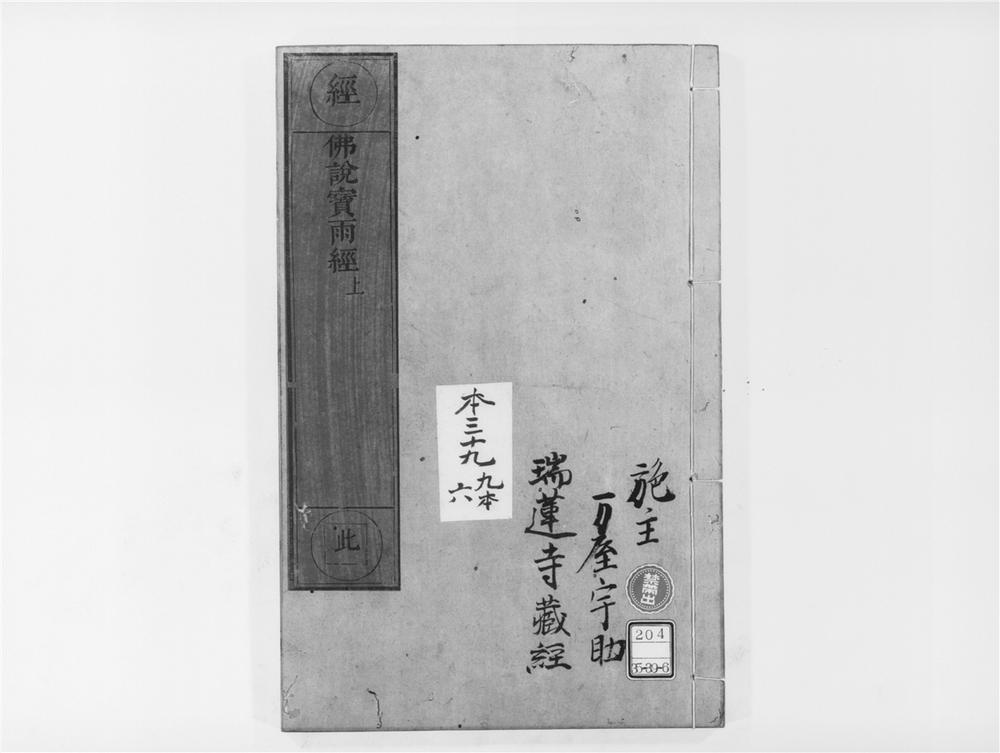 經
佛說寶雨經上
此
一
本三十九
九本
六
施主
万屋宇助
瑞蓮寺藏經
禁帶出
204
35-39-6